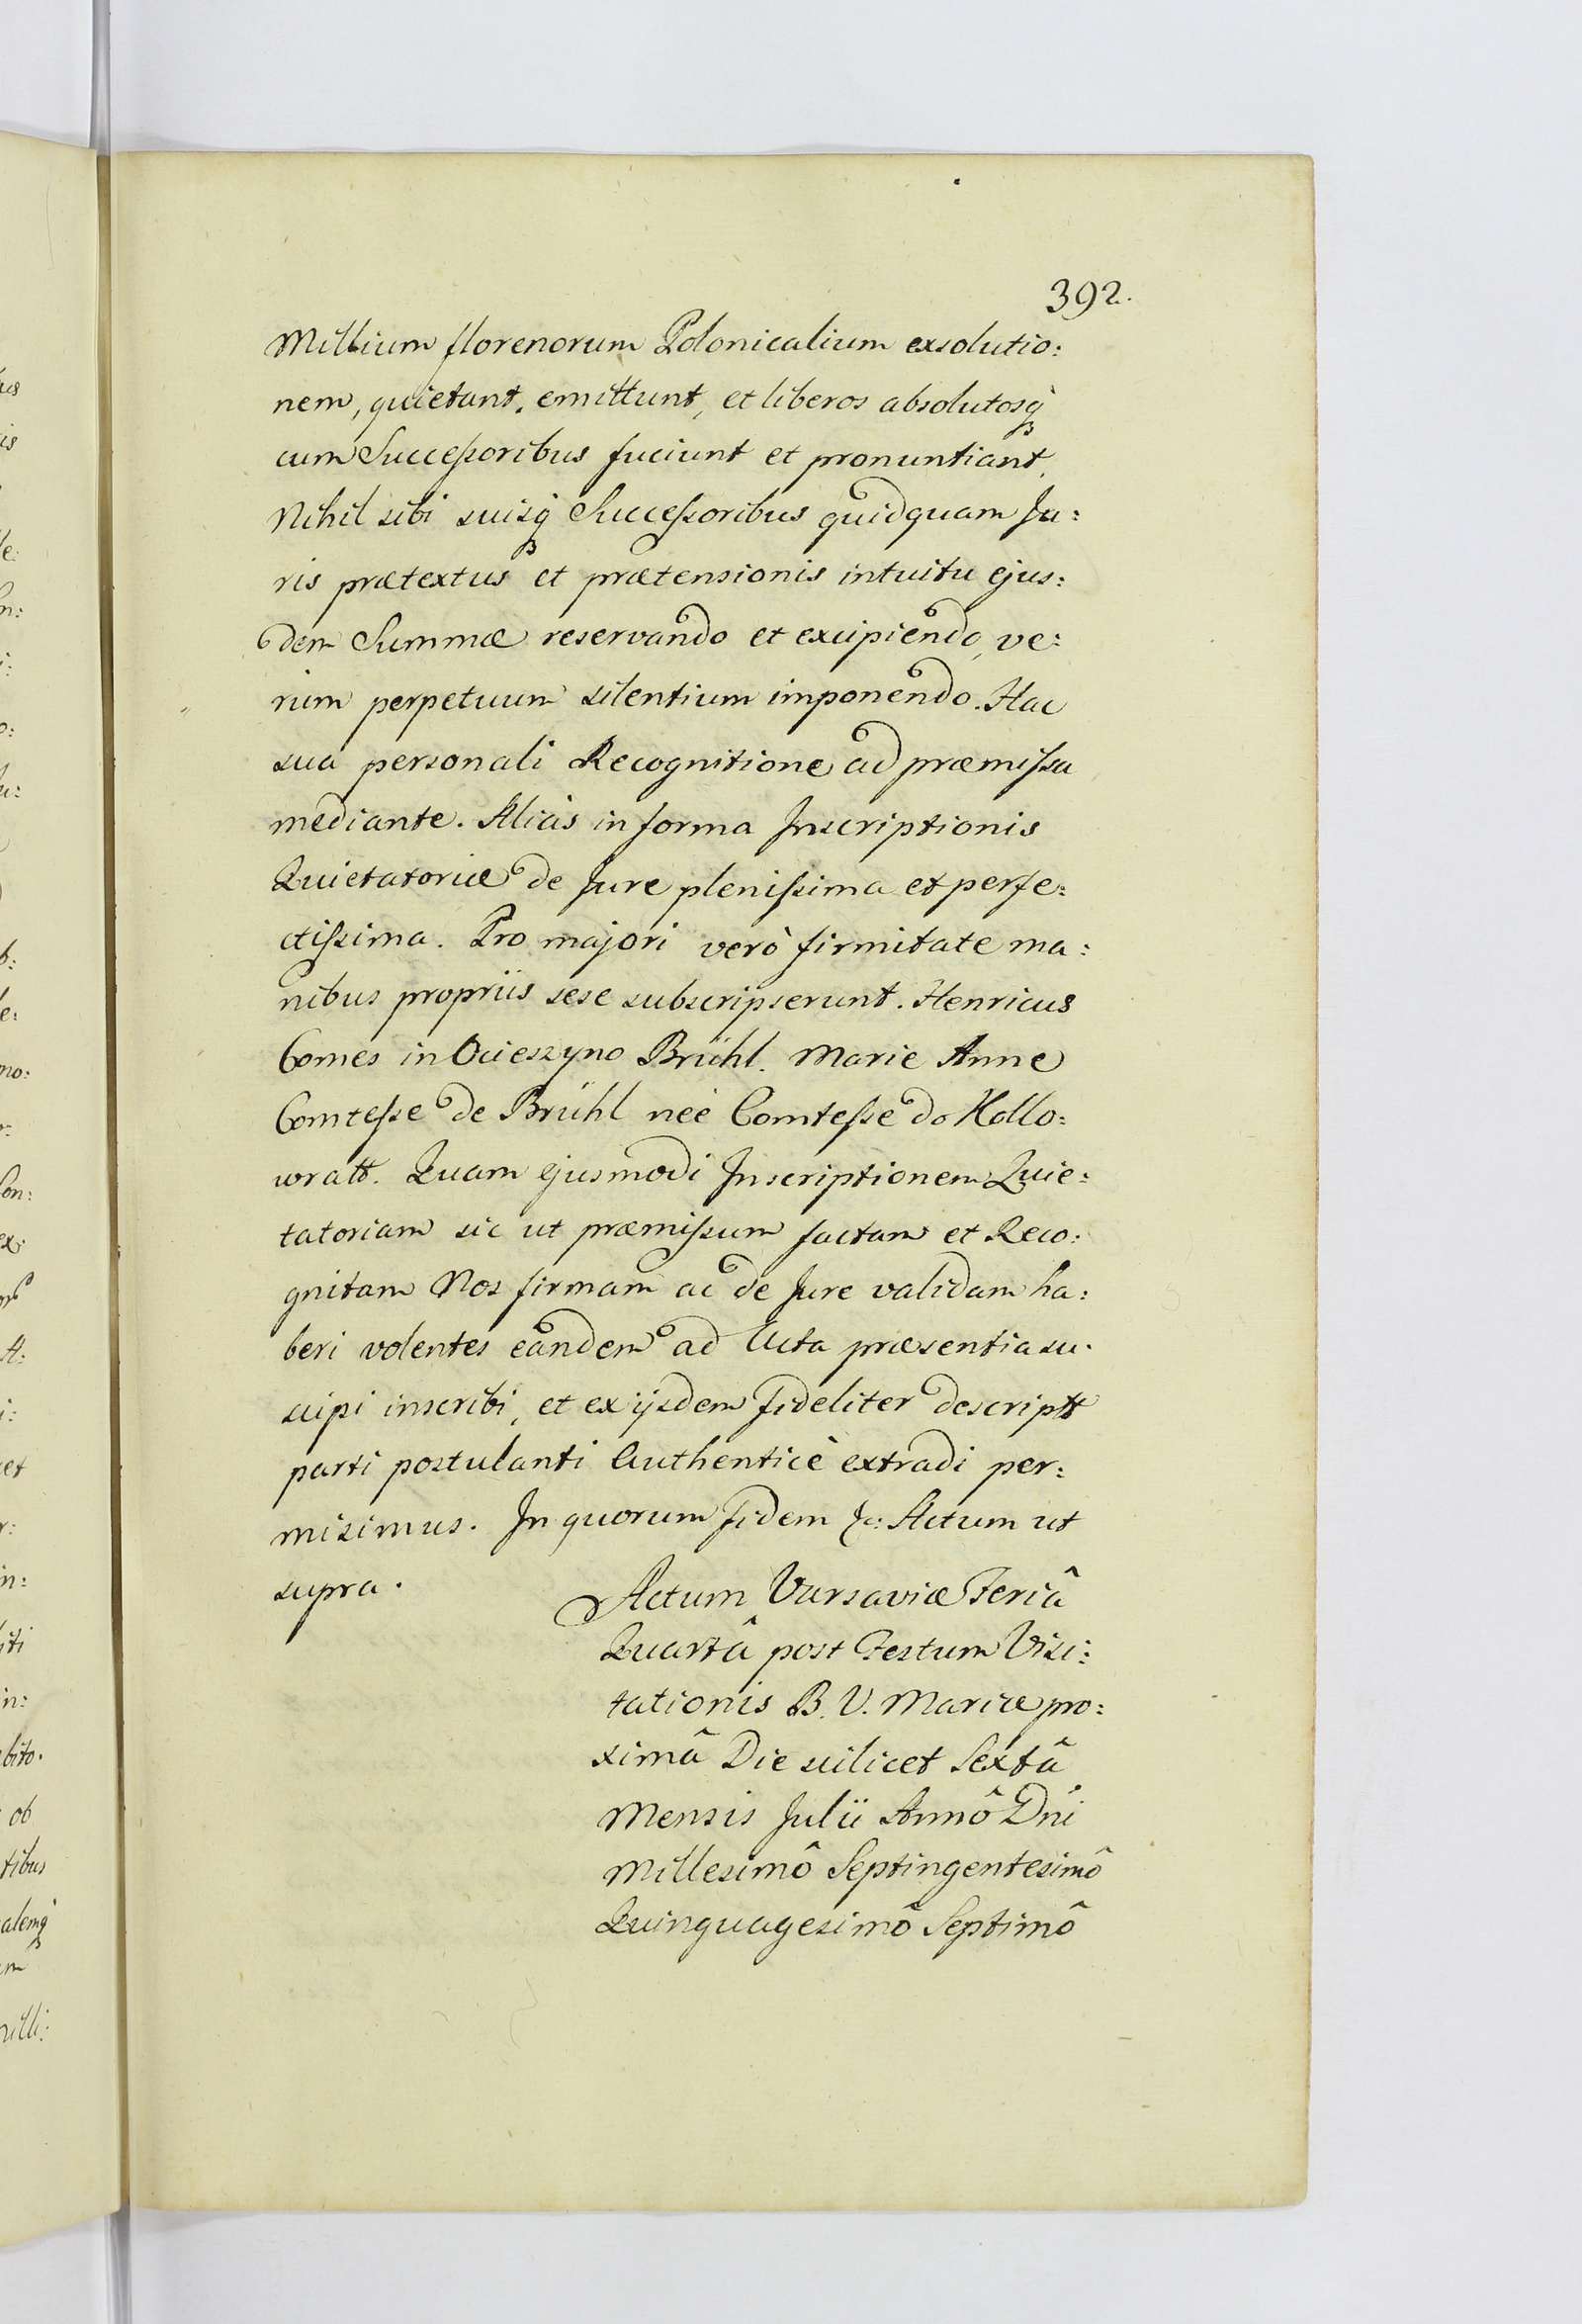 392.
Millium florenorum Polonicalium exsolutio:
nem, quietant, emittunt, et liberos absolutosq́
cum Successoribus faciunt et pronuntiant,
Nihil sibi suisq́ Successoribus quidquam Ju:
ris prætextus et prætensionis intuitu ejus:
dem Summæ reservando et excipiendo, ve:
rum perpetuum silentium imponendo. Hac
sua personali Recognitione ad præmissa
mediante. Aliàs in forma Inscriptionis
Quietatoriæ de Jure plenissima et perfe:
ctissima. Pro majori verò firmitate ma:
nibus propriis sese subscripserunt. Henricus
Comes in Ocieszyno Brühl. Marie Anne
Comtesse de Brühl neé Comtesse de Kollo:
wratt. Quam ejusmodi Inscriptionem Quie:
tatoriam sic ut præmissum factam et Reco:
gnitam Nos firmam ac de Jure validam ha:
beri volentes eandem ad Acta præsentia su:
scipi inscribi, et ex ijsdem fideliter descriptt
parti postulanti Authenticè extradi per:
misimus. In quorum fidem &c: Actum ut
supra.
Actum Varsaviæ Feriâ
Quartâ post Festum Visi:
tationis B. V. Mariæ pro:
ximâ Die scilicet Sextâ
Mensis Julii Annô Dńi
Millesimô Septingentesimô
Quinquagesimô Septimô